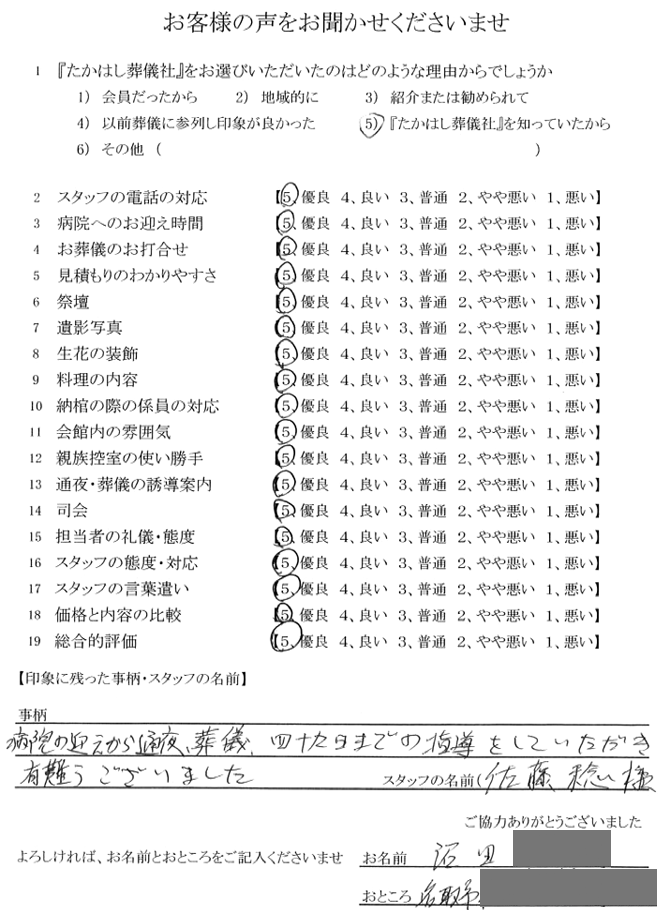 お客様の声をお聞かせくださいませ
1 『たかはし葬儀社』をお選びいただいたのはどのような理由からでしょうか
1) 会員だったから 2) 地域的に 3) 紹介または勧められて
4) 以前葬儀に参列し印象が良かった 5) 『たかはし葬儀社』を知っていたから
6) その他 ( )
2 スタッフの電話の対応 【5、優良 4、良い 3、普通 2、やや悪い 1、悪い】
3 病院へのお迎え時間 【5、優良 4、良い 3、普通 2、やや悪い 1、悪い】
4 お葬儀のお打合せ 【5、優良 4、良い 3、普通 2、やや悪い 1、悪い】
5 見積もりのわかりやすさ 【5、優良 4、良い 3、普通 2、やや悪い 1、悪い】
6 祭壇 【5、優良 4、良い 3、普通 2、やや悪い 1、悪い】
7 遺影写真 【5、優良 4、良い 3、普通 2、やや悪い 1、悪い】
8 生花の装飾 【5、優良 4、良い 3、普通 2、やや悪い 1、悪い】
9 料理の内容 【5、優良 4、良い 3、普通 2、やや悪い 1、悪い】
10 納棺の際の係員の対応 【5、優良 4、良い 3、普通 2、やや悪い 1、悪い】
11 会館内の雰囲気 【5、優良 4、良い 3、普通 2、やや悪い 1、悪い】
12 親族控室の使い勝手 【5、優良 4、良い 3、普通 2、やや悪い 1、悪い】
13 通夜・葬儀の誘導案内 【5、優良 4、良い 3、普通 2、やや悪い 1、悪い】
14 司会 【5、優良 4、良い 3、普通 2、やや悪い 1、悪い】
15 担当者の礼儀・態度 【5、優良 4、良い 3、普通 2、やや悪い 1、悪い】
16 スタッフの態度・対応 【5、優良 4、良い 3、普通 2、やや悪い 1、悪い】
17 スタッフの言葉遣い 【5、優良 4、良い 3、普通 2、やや悪い 1、悪い】
18 価格と内容の比較 【5、優良 4、良い 3、普通 2、やや悪い 1、悪い】
19 総合的評価 【5、優良 4、良い 3、普通 2、やや悪い 1、悪い】
【印象に残った事柄・スタッフの名前】
事柄
病院の迎えから通夜、葬儀、四十九日までの指導をしていただき
有難うございました スタッフの名前(佐藤 様
ご協力ありがとうございました
よろしければ、お名前とおところをご記入くださいませ お名前 沼田
おところ 名取市